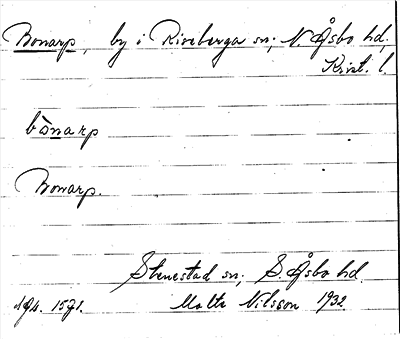 Bonarp, by i Riseberga sn; N. Åsbo hd,
Krist. l.
bònarp
Bonarp.
Stenestad sn; S. Åsbo hd.
Malte Nilsson 1932